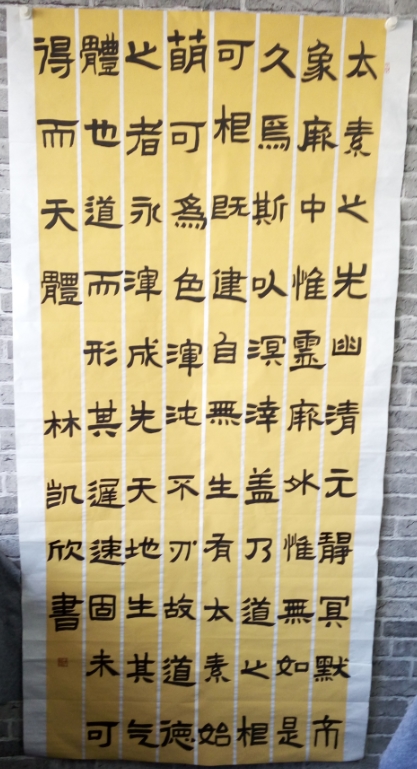 太素之先幽清元靜冥默
象厥中惟靈厥外惟無如是
久焉斯以溟涬蓋乃道之根
可根既建自無生有太素始
萌可為色渾沌不分故道德
之者永渾成先天地生其气
體也道而形其遲速固未可
得而天體 林凱欣書